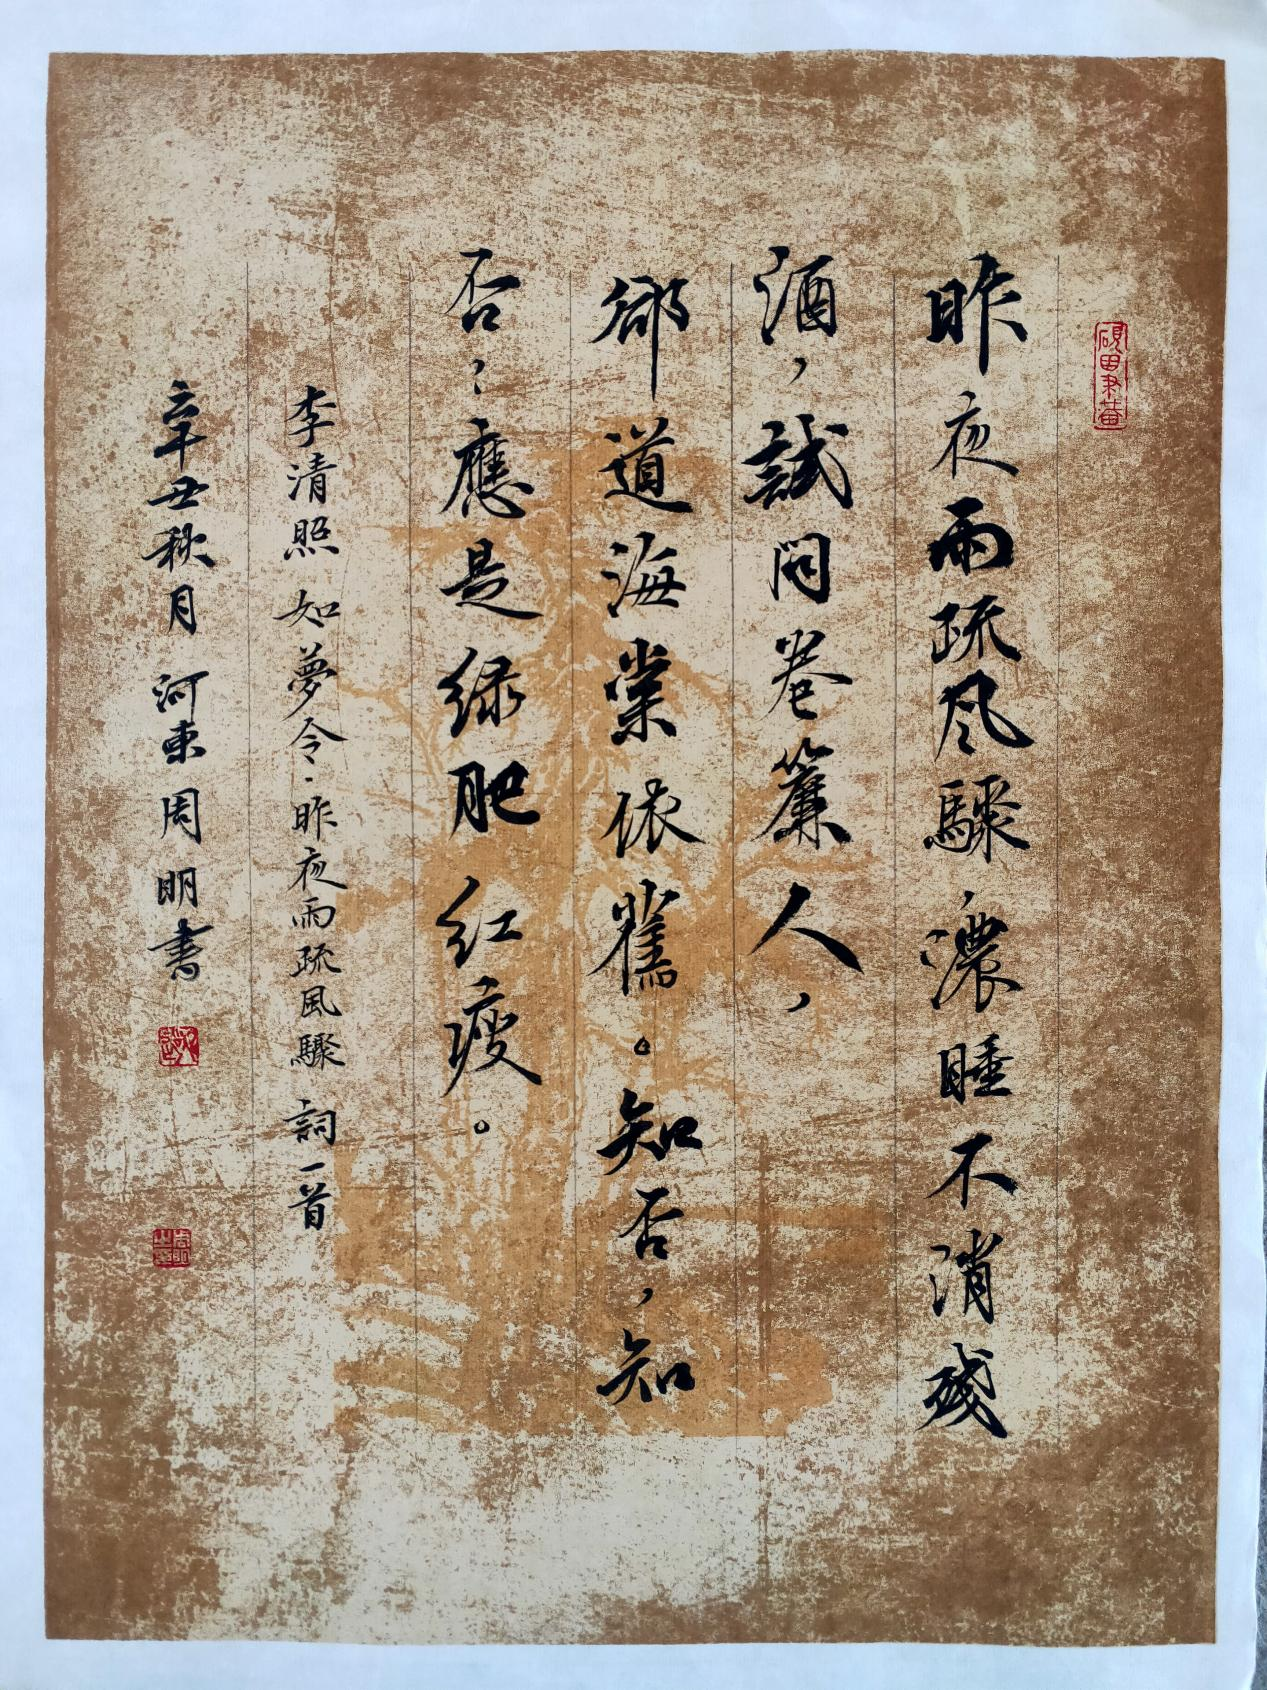 昨夜雨疏風驟,濃睡不消殘
酒,試問卷簾人,
卻道海棠依舊。知否,知
否;應是绿肥红瘦。
李清照 如夢令·昨夜雨疏風驟 詞一首
辛丑秋月 河東周明書